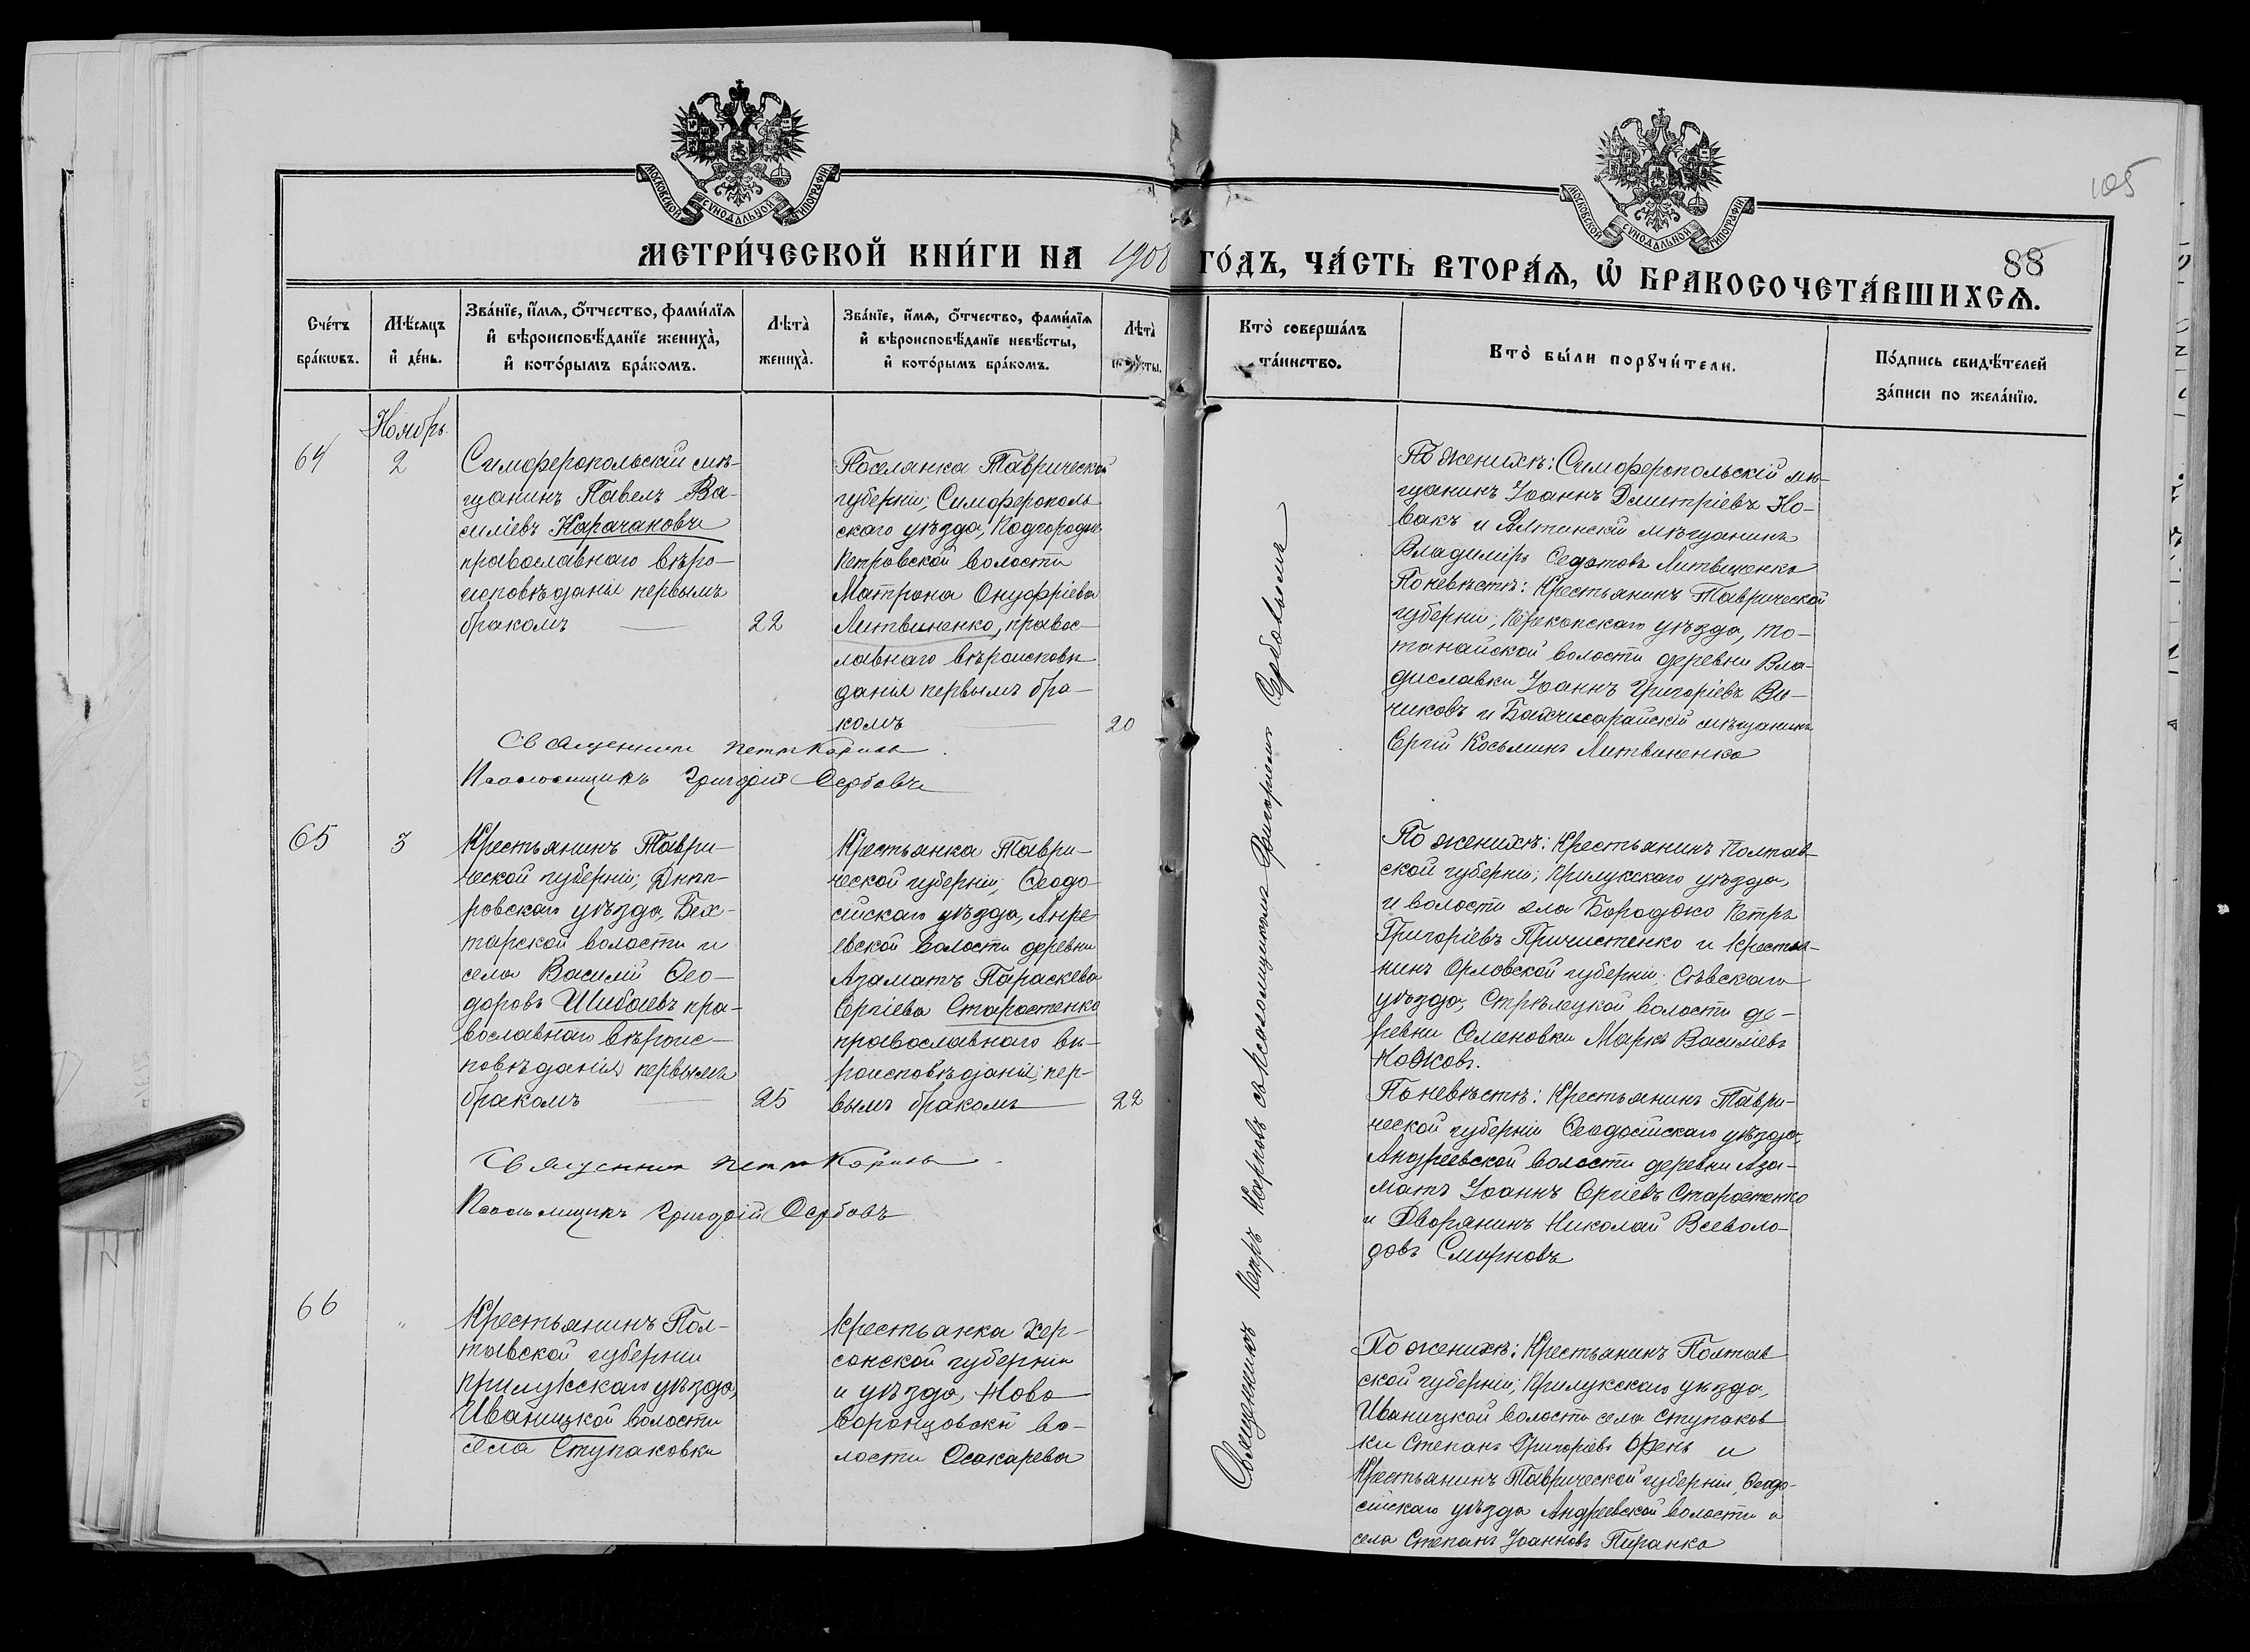 МОСКОВСКОЙ СУНОДАЛЬНОЙ ТИПОГРАФІИ.
МОСКОВСКОЙ СУНОДАЛЬНОЙ ТИПОГРАФІИ.
105
88
МЕТРИ́ЧЕСКОЙ КНИ́ГИ НА 1908 ГО́ДЪ, ЧА́СТЬ ВТОРА́Ѧ, Ѽ БРАКОСОЧЕТА́ВШИХСѦ.
Сче́тъ
бра́кѡвъ.
Мѣ́сѧцъ
и҆ де́нь.
Зва́нїе, и҆́мѧ, ѻ҆́тчество, фами́лїѧ
и҆ вѣроисповѣ́данїе жениха̀,
и҆ кото́рымъ бра́комъ.
Лѣта̀
жениха̀.
Зва́нїе, и҆́мѧ, ѻ҆́тчество, фами́лїѧ
и҆ вѣроисповѣ́данїе невѣ́сты,
и҆ кото́рымъ бра́комъ.
Лѣта̀
Кто̀ соверша́лъ
та́инство.
Кто̀ бы́ли порꙋчи́тели.
По́дпись свидѣ́телей
за́писи по жела́нїю.
Ноябрь
64
2
Симферопольскій мѣ-
щанинъ Павелъ Ва-
силіевъ Карачановъ
православнаго вѣро-
исповѣданія первымъ
бракомъ
22
Поселянка Таврической
губерніи, Симферополь
скаго уѣзда, Подгородне
Петровской волости
Матрона Онуфріева
Литвиненко, правос-
лавнаго вѣроисповѣ
данія первымъ бра-
комъ
20
Священникъ Петръ Карповъ
Псаломщикъ Григорій Сербовъ
По женихѣ: Симферопольскій мѣ-
щанинъ Іоаннъ Дмитріевъ Но-
вакъ и Ялтинскій мѣщанинъ
Владиміръ Литвиненко
По невѣстѣ: Крестьянинъ Таврической
губерніи, Перекопскаго уѣзда, То-
танайской волости деревни Вла-
диславки Іоаннъ Григоріевъ
и Бахчисарайскій мѣщанинъ
Сергій Косьминъ Литвиненко
65
3
Крестьянинъ Таври-
ческой губерніи, Днѣп-
ровскаго уѣзда, Бех-
тарской волости и
села Василій Ѳео-
доровъ Шибаевъ пра-
вославнаго вѣроис-
повѣданія первымъ
бракомъ
25
Крестьянка Таври-
ческой губерніи, Ѳеодо-
сійскаго уѣзда, Андре
евской волости деревни
Азаматъ Параскева
Сергіева Старостенко
православнаго вѣ-
роисповѣданія, пер-
вымъ бракомъ
22
Священникъ Петръ Карповъ
Псаломщикъ Григорій Сербовъ
По женихѣ: Крестьянинъ Полтав-
ской губерніи, Прилукскаго уѣзда,
и волости села Петръ
Григоріевъ Причистенко и крестья-
нинъ Орловской губерніи, Сѣвскаго
уѣзда, Стрѣлецкой волости де-
ревни Семеновки Марко Василіевъ
Ножковъ.
По невѣстѣ: Крестьянинъ Таври-
ческой губерніи Ѳеодосійскаго уѣзда,
Андреевской волости деревни Аза-
матъ Іоаннъ Сергіевъ Старостенко
и Дворянинъ Николай Всеволо-
довъ Смирновъ
66
"
Крестьянинъ Пол-
тавской губерніи
Прилукскаго уѣзда,
Иваницкой волости
села Ступаковки
Крестьянка Хер-
сонской губерніи
и уѣзда, Ново
воронцовской во-
лости
По женихѣ: Крестьянинъ Полтав
ской губерніи, Прилукскаго уѣзда,
Иваницкой волости села Ступаков
ки Степанъ Григоріевъ и
Крестьянинъ Таврической губерніи, Ѳеодо-
сійскаго уѣзда Андреевской волости и
села Степанъ Іоанновъ Пиранко
Священникъ Петръ Карповъ съ псаломщикомъ Григоріемъ Сербовымъ